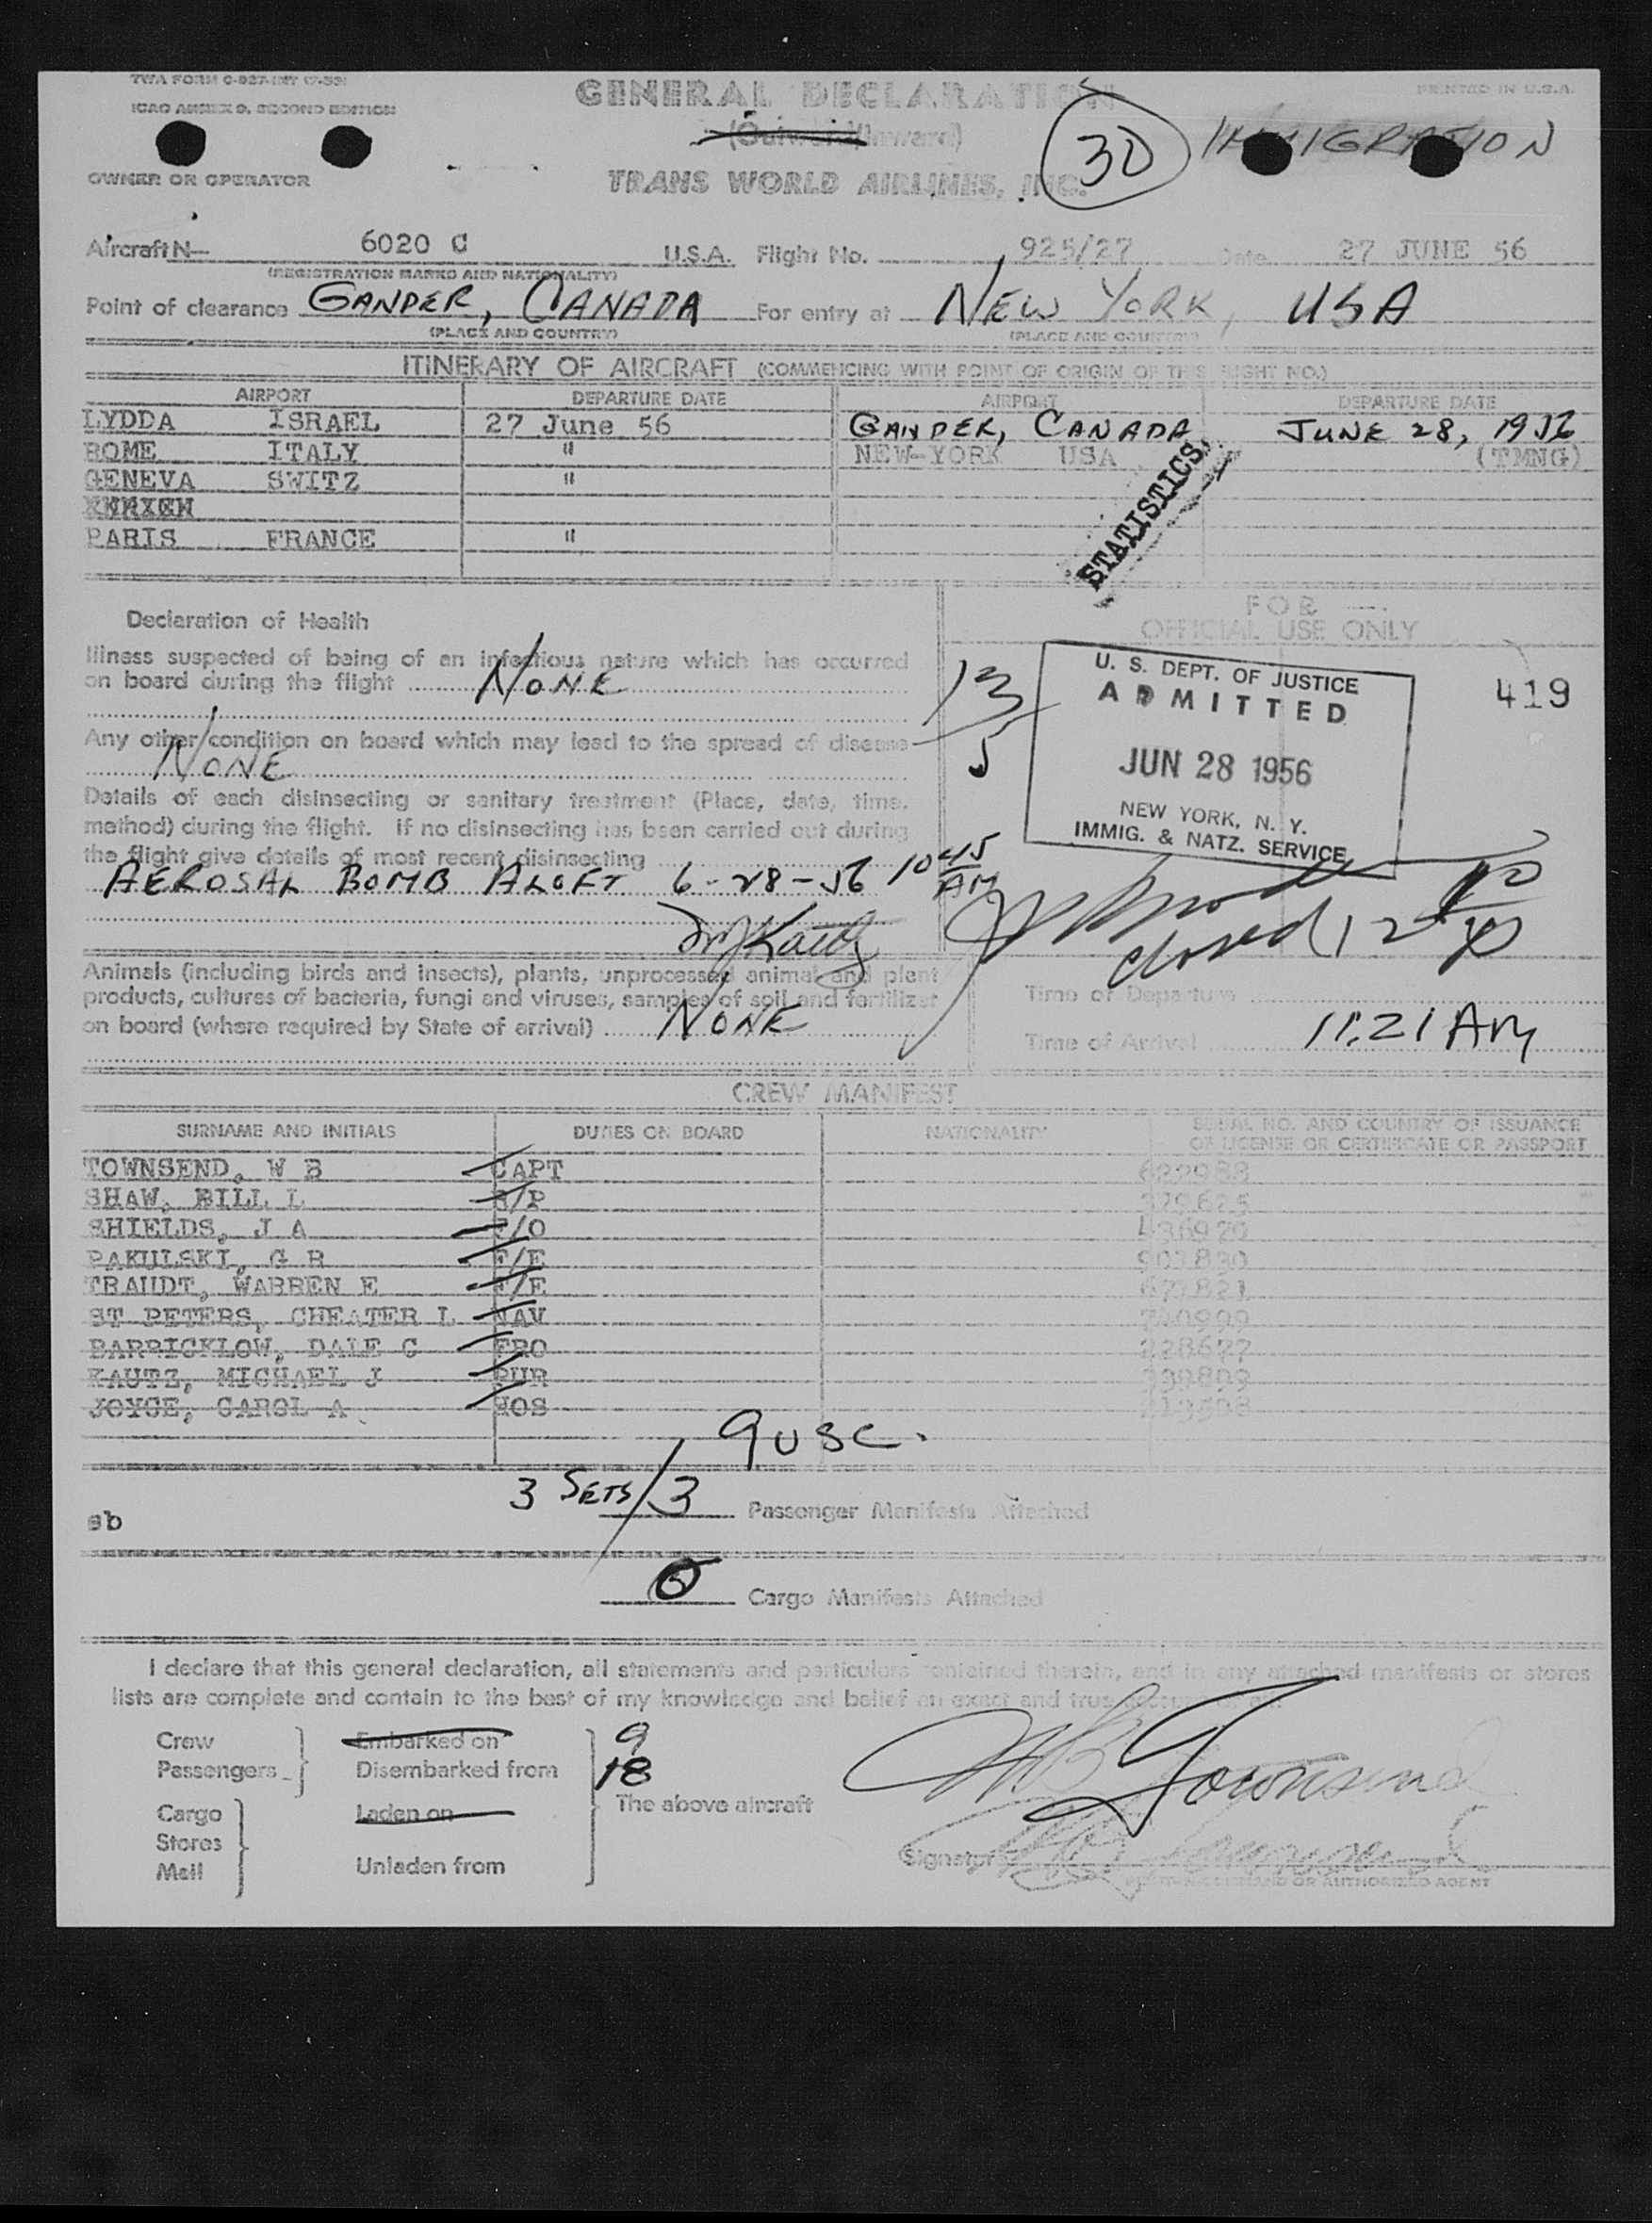 TWA FORM C-927-INT (7-55)
ICAO ANNEX 9, SECOND EDITION
GENERAL DECLARATION
PRINTED IN U.S.A.
(Outward/Inward)
30
IMMIGRATION
OWNER OR OPERATOR
TRANS WORLD AIRLINES, INC.
Aircraft N— 6020 C U.S.A. Flight No. 925/27 Date 27 JUNE 56
(REGISTRATION MARKS AND NATIONALITY)
Point of clearance GANDER, CANADA For entry at NEW YORK, USA
(PLACE AND COUNTRY) (PLACE AND COUNTRY)
ITINERARY OF AIRCRAFT (COMMENCING WITH POINT OF ORIGIN OF THIS FLIGHT NO.)
AIRPORT DEPARTURE DATE AIRPORT DEPARTURE DATE
LYDDA ISRAEL 27 June 56 GANDER, CANADA JUNE 28, 1956
ROME ITALY " NEW-YORK USA (TMNG)
GENEVA SWITZ "
PARIS FRANCE "
STATISTICS
Declaration of Health
FOR
OFFICIAL USE ONLY
Illness suspected of being of an infectious nature which has occurred
on board during the flight NONE
13
5
U. S. DEPT. OF JUSTICE
ADMITTED
JUN 28 1956
NEW YORK, N. Y.
IMMIG. & NATZ. SERVICE
419
Any other condition on board which may lead to the spread of disease
NONE
Details of each disinsecting or sanitary treatment (Place, date, time,
method) during the flight. If no disinsecting has been carried out during
the flight give details of most recent disinsecting
AEROSAL BOMB ALOFT 6-28-56 10 45 AM
MJKautz
closed 12
Animals (including birds and insects), plants, unprocessed animal and plant
products, cultures of bacteria, fungi and viruses, samples of soil and fertilizer
on board (where required by State of arrival) NONE
Time of Departure
Time of Arrival 11:21 AM
CREW MANIFEST
SURNAME AND INITIALS DUTIES ON BOARD NATIONALITY SERIAL NO. AND COUNTRY OF ISSUANCE
OF LICENSE OR CERTIFICATE OR PASSPORT
TOWNSEND, W B CAPT
SHAW, BILL L
SHIELDS, J A F/O
PAKULSKI, G R F/E
TRAUDT, WARREN E F/E
ST PETERS, CHEATER L NAV
BARRICKLOW, DALE G FRO
KAUTZ, MICHAEL J PUR
JOYCE, CAROL A HOS
9 USC.
3 SETS/3 Passenger Manifests Attached
sb
0 Cargo Manifests Attached
I declare that this general declaration, all statements and particulars contained therein, and in any attached manifests or stores
lists are complete and contain to the best of my knowledge and belief an exact and true account of all
Crew Embarked on 9
Passengers Disembarked from 18
The above aircraft
Cargo Laden on
Stores
Mail Unladen from
WB Townsend
Signature WB Townsend
PILOT-IN-COMMAND OR AUTHORIZED AGENT